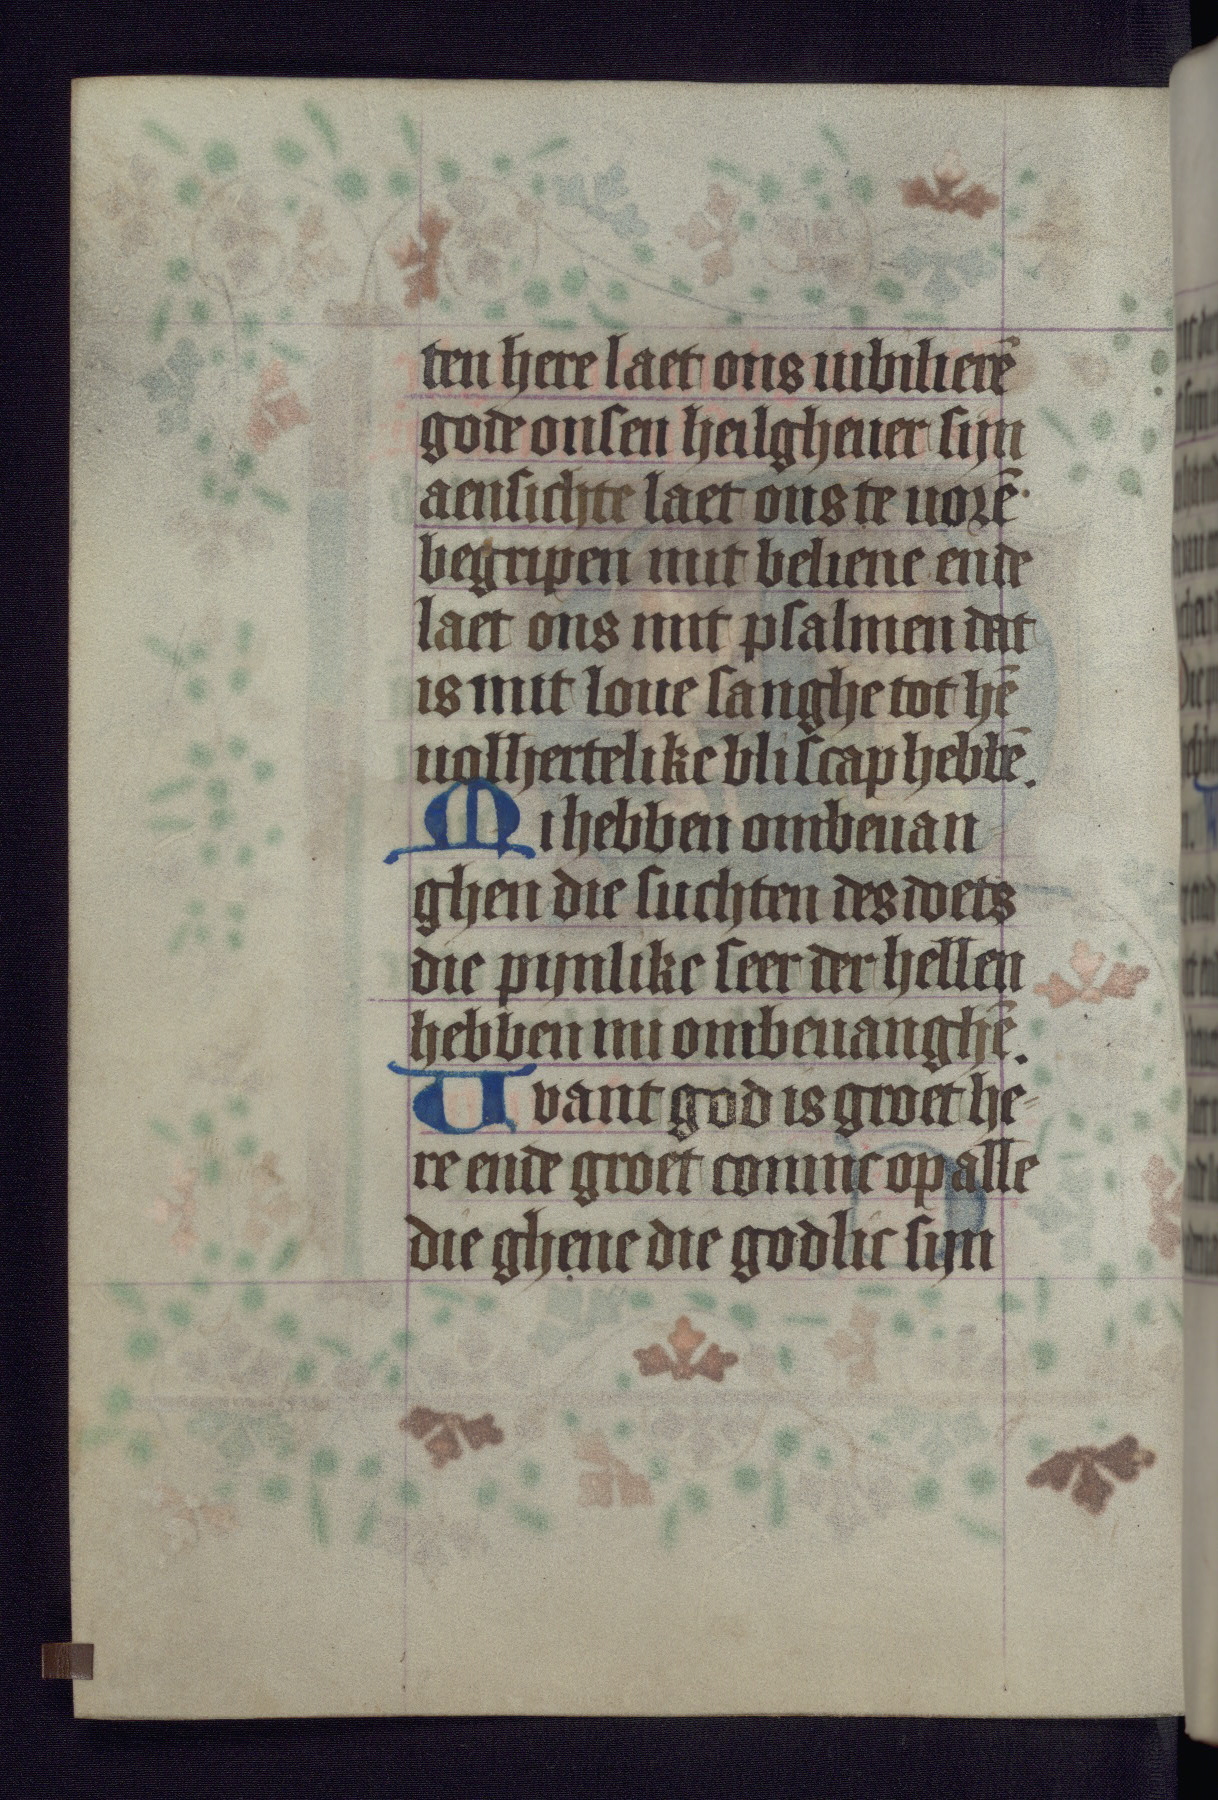 ten here laet ons iubilierē
gode onsen heilgheuer sijn
aensichte laet ons te uorē
begripen mit beliene ende
laet ons mit psalmen dat
is mit loue sanghe tot hē
uolhertelike bliscap hebbē.
Mi hebben ombeuan
ghen die suchten des doets
die pijnlike seer der hellen
hebben mi ombeuanghē.
Uvant god is groet he-
re ende groet coninc op alle
die ghene die godlic sijn